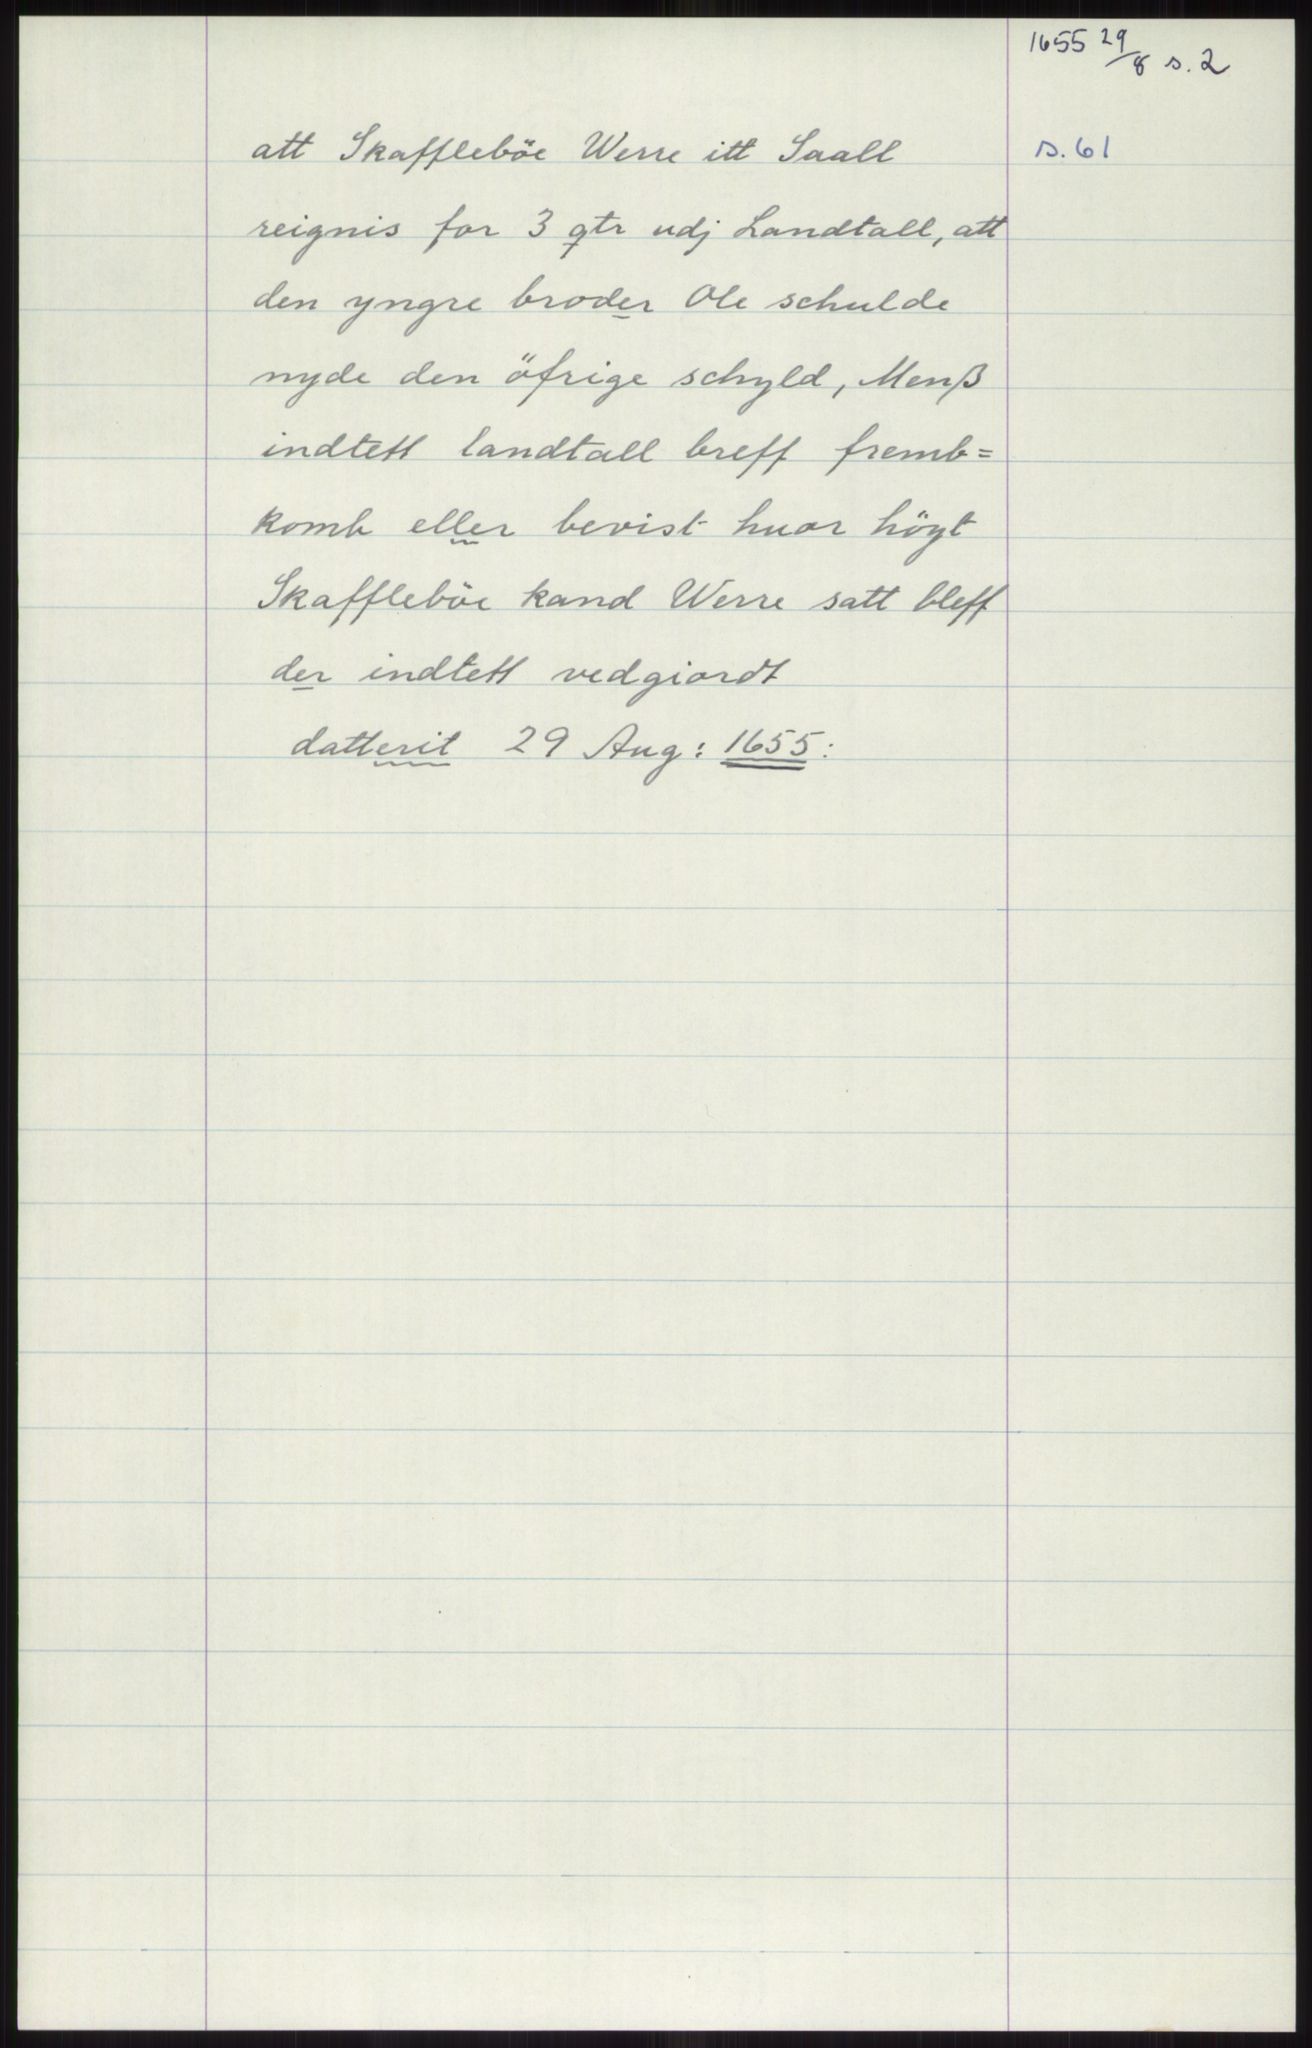 1655 29/8 s. 2
att Skaffleböe Werre itt Saall s. 61
reignis for 3 qtr udj Landtall, att
den yngre broder Ole schulde
nyde den öfrige schyld, Menß
indtett landtall breff fremb=
komb eller bevist huor höyt
Skaffleböe kand Werre satt bleff
der indtett vedgiordt
datterit 29 Aug: 1655: